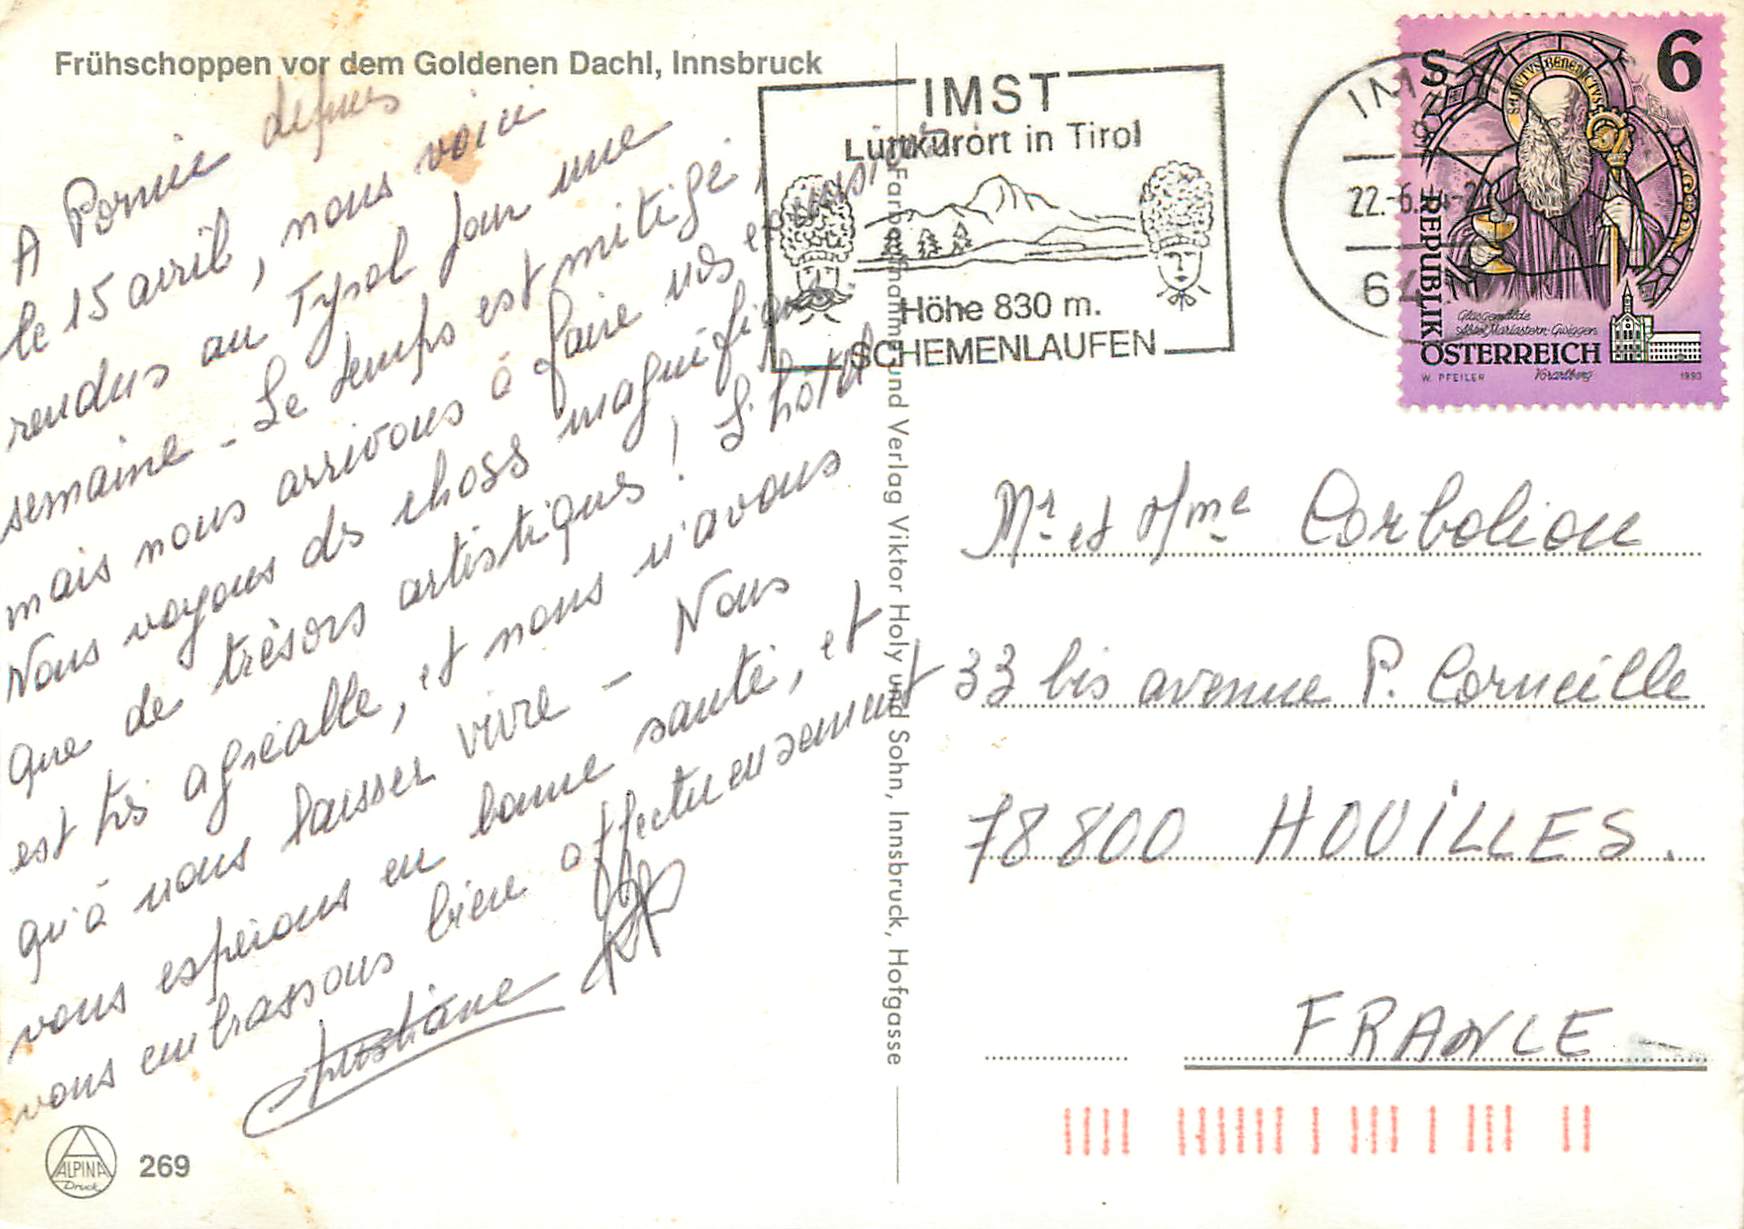 Frühschoppen vor dem Goldenen Dachl, Innsbruck
A Pornic depuis
le 15 avril, nous voici
rendus au Tyrol pour une
semaine - Le temps est mitigé,
mais nous arrivons à faire nos excursions
Nous voyons des choses magnifiques
que de trésors artistiques ! L'hotel
est très agréable, et nous n'avons
qu'à nous laisser vivre - Nous
vous espérons en bonne santé, et
vous embrassons bien affectueusement
Christiane
ALPINA
Druck
269
Farbaufnahme und Verlag Viktor Holy und Sohn, Innsbruck, Hofgasse
IMST
Luftkurort in Tirol
Höhe 830 m.
SCHEMENLAUFEN
22.-6.
S 6
SANCTVS BENEDICTVS
REPUBLIK
ÖSTERREICH
Glasgemälde
Abtei Mariastern-Gwiggen
Vorarlberg
W. PFEILER
1993
Mr et Mme Corboliou
33 bis avenue P. Corneille
78800 HOUILLES.
FRANCE